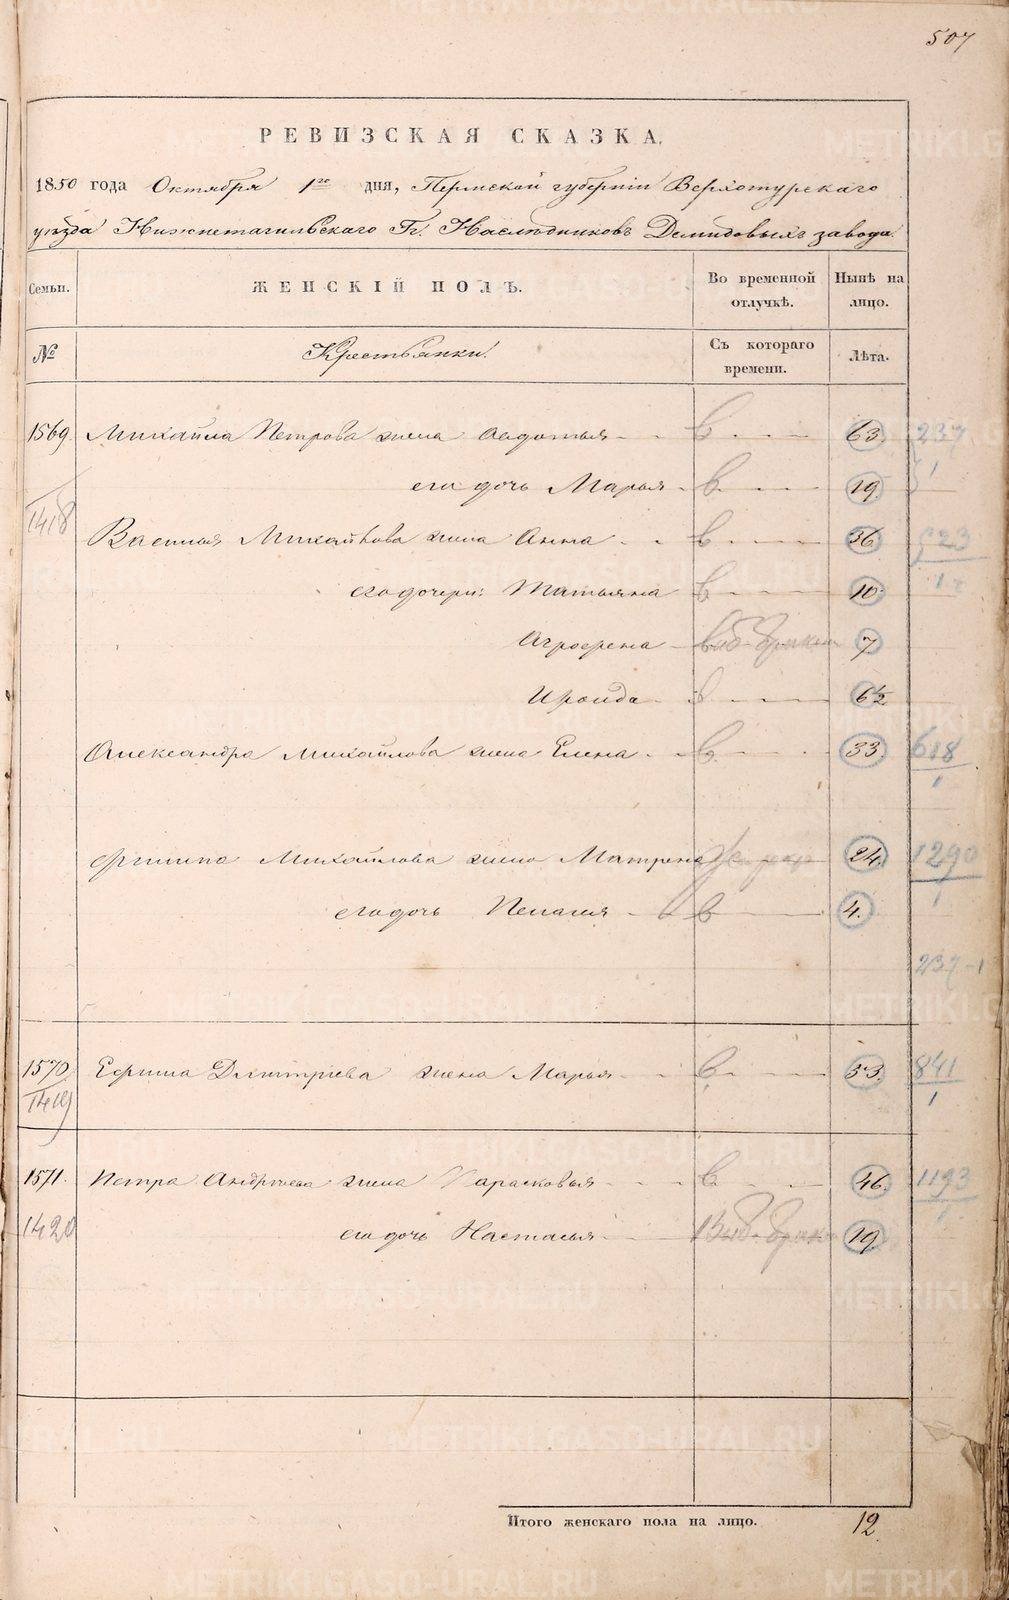 507
РЕВИЗСКАЯ СКАЗКА.
1850 года Октября 1го дня, Пермской губерніи Верхотурскаго
уѣзда Нижнетагильскаго Гг. Наслѣдниковъ Демидовыхъ завода.
Семьи. ЖЕНСКІЙ ПОЛЪ. Во временной отлучкѣ. Нынѣ на лицо.
№ Крестьянки. Съ котораго времени. Лѣта.
1569. Михайла Петрова жена Авдотья в 63. 237
его дочь Марья в 19. 1
1418
Василья Михайлова жена Анна в 36 523
его дочери: Татьяна в 10. 1
Агрофена 7
Ироида в 6 1/2
Александра Михайлова жена Елена в 33 618
1
Филипа Михайлова жена Матрена 24. 1290
1
его дочь Пелагея в 4.
237-1
1570. Ефима Дмитріева жена Марья в 33. 841
1419 1
1571. Петра Андрѣева жена Парасковья в 46. 1193
1
1420 его дочь Настасья 19
Итого женскаго пола на лицо. 12
METRIKI.GASO-URAL.RU